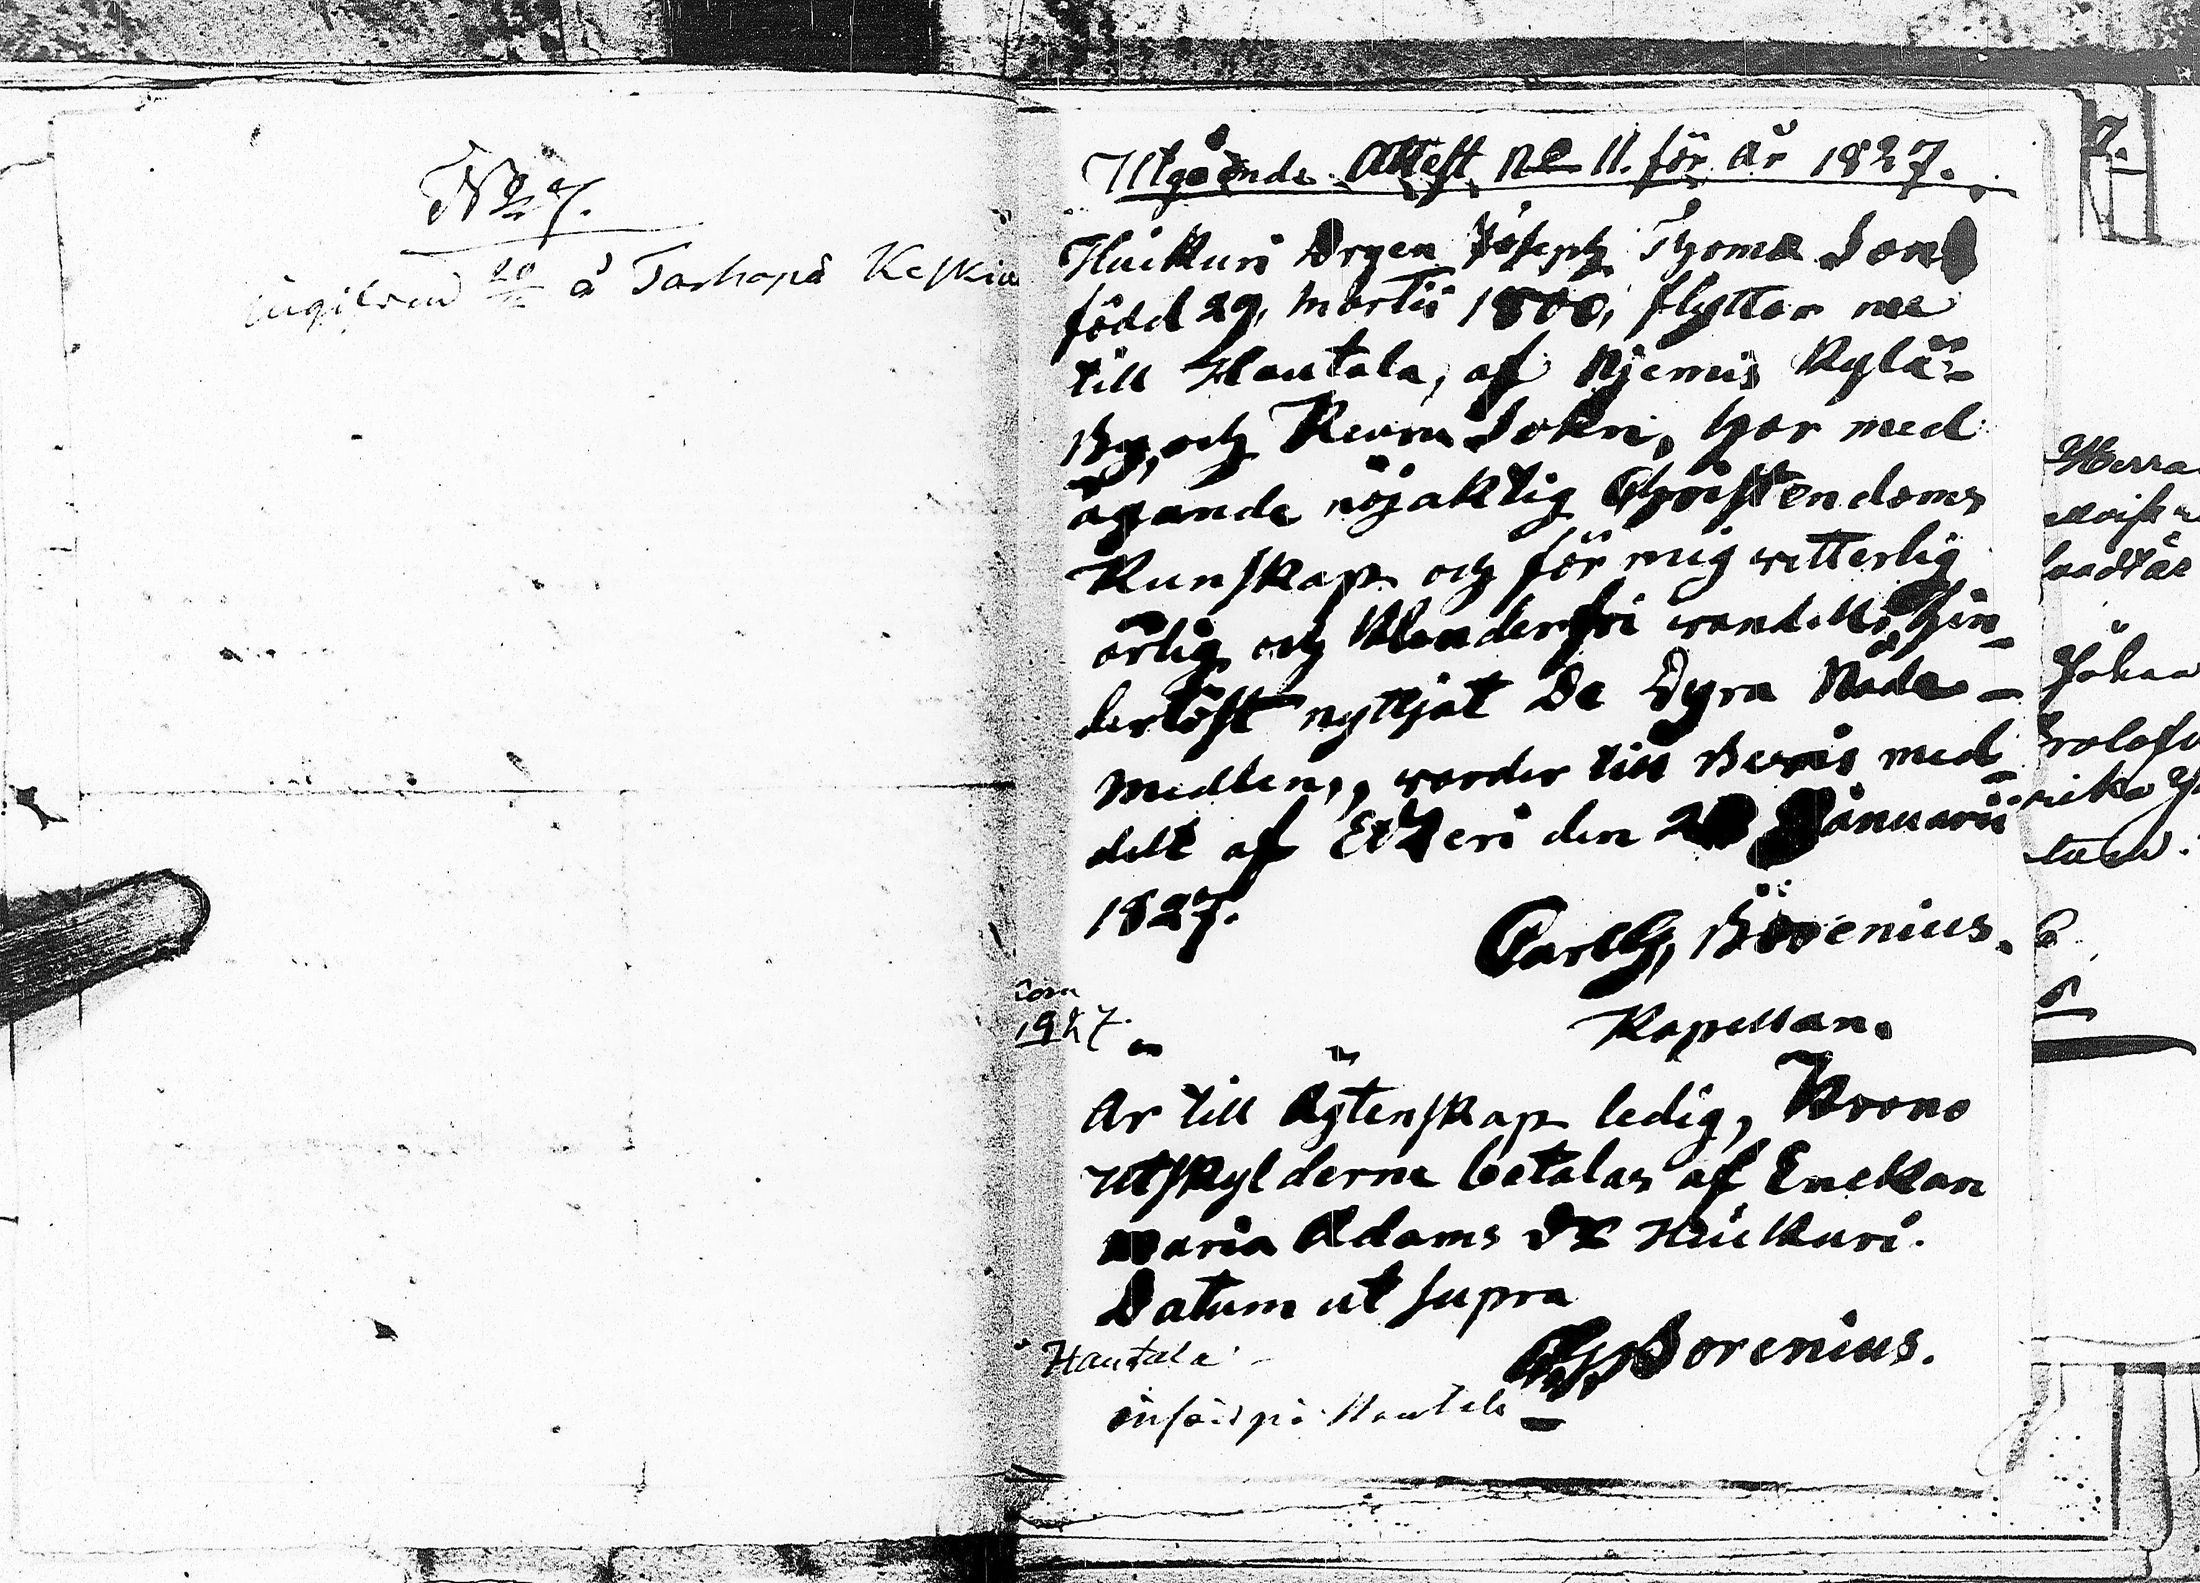 No 7.
å Tarhapä Keskin
Utgående Attest No 11. för År 1827.
Huikuri Drgen Joseph Thoma Son
född 29, Martii 1800, flytter nu
till Hautala, af Niemis Kylä-
By, och Keuru Sokn, har med
ägande nöjaktig Christendoms
Kunskap och för mig witterlig
ärlig och klanderfri wandell, hin-
derlöst nyttjat De Dyra Nåde-
medlen, warder till Bewis med-
delt af Etzeri den Januarii
1827.
Carl G, Borenius.
Kapellan.
1827.
Är till Ägtenskap ledig, Krono
utskylderne betalas af Enckan
Maria Adams Dr Huikuri.
Datum ut supra
CG, Borenius.
Hautala
införd på Hautala